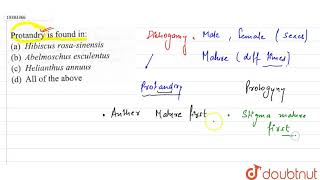 19384366
Protandry is found in:
(a) Hibiscus rosa-sinensis
(b) Abelmoschus esculentus
(c) Helianthus annuus
(d) All of the above
Dichogamy - Male, Female (sexes)
Mature (diff times)
Protandry
Protogyny
• Anther Mature first.
• Stigma mature
first
doubtnut